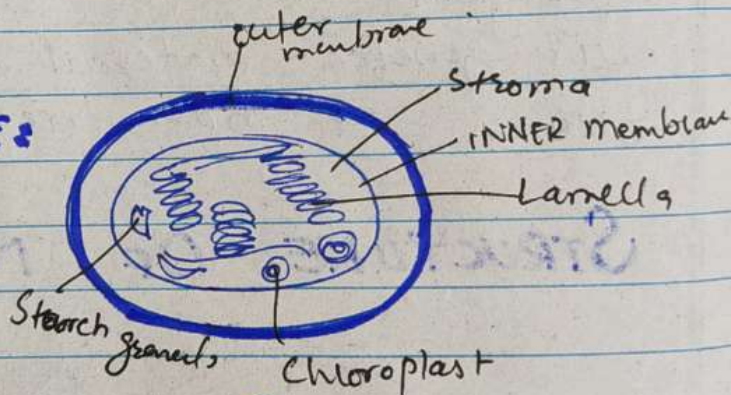 outer
membrane
Stroma
INNER membrane
Lamella
Starch
Chloroplast